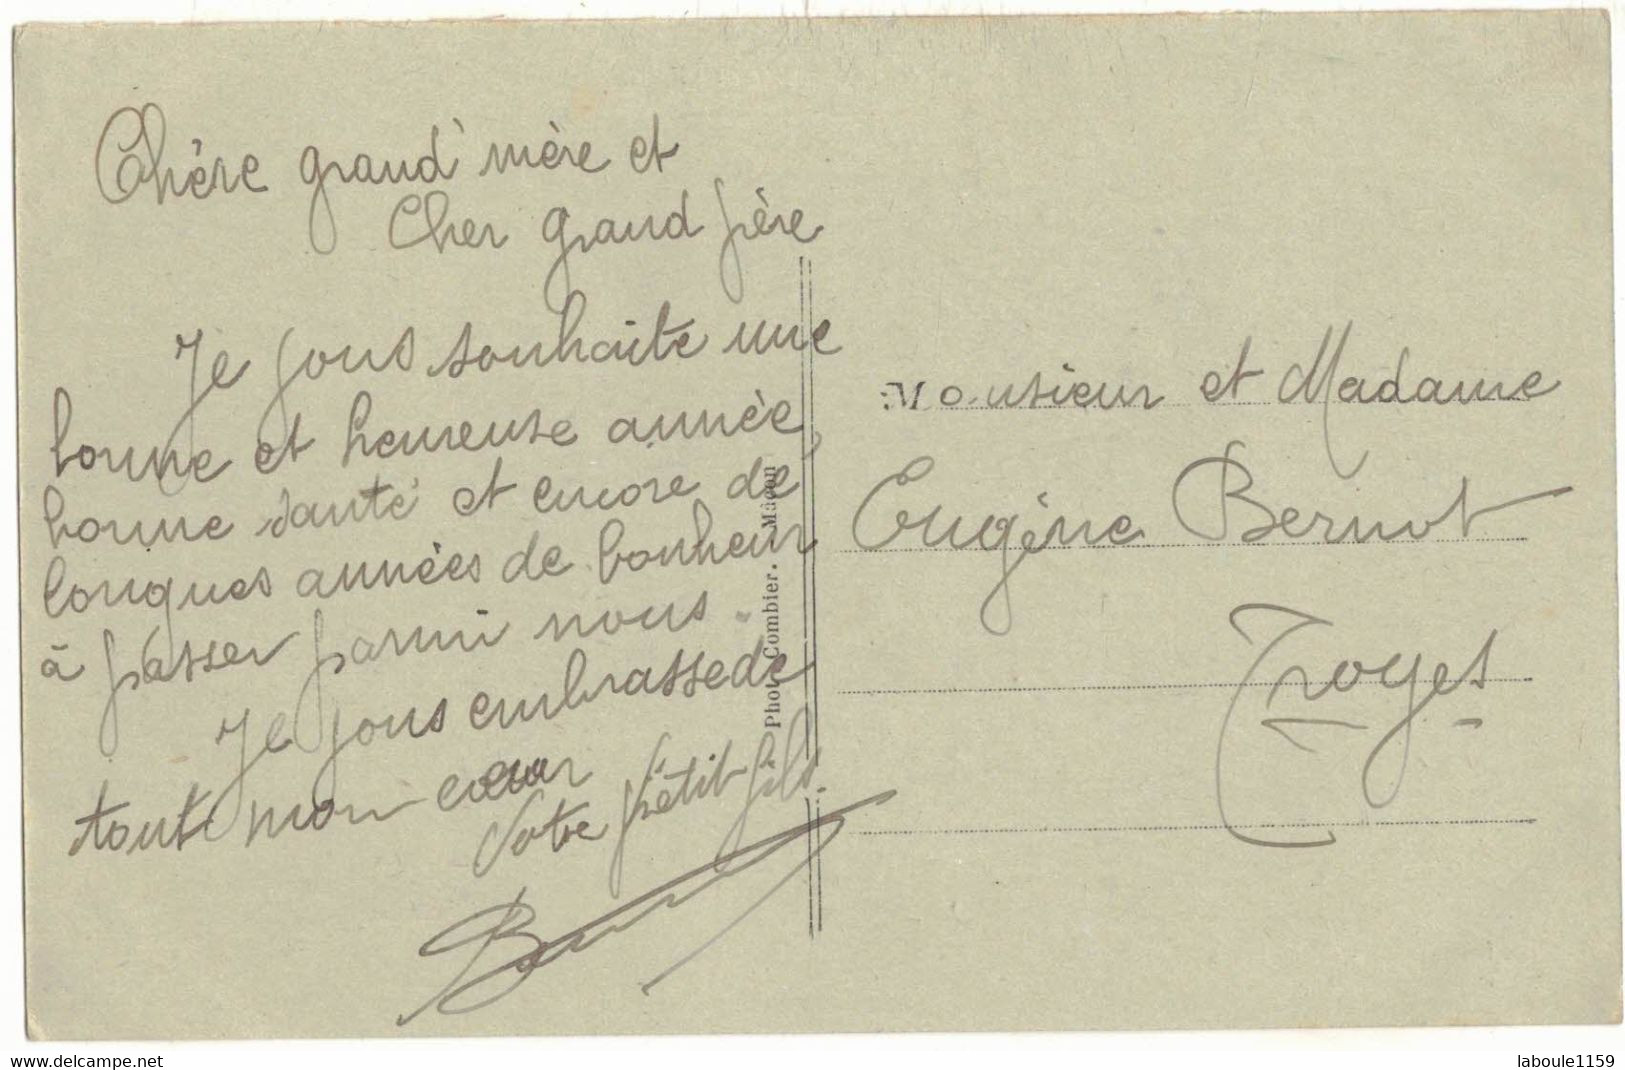 Chère grand'mère et
Cher grand père
Je vous souhaite une
bonne et heureuse année,
bonne santé et encore de
longues années de bonheur
à passer parmi nous.
Je vous embrasse de
tout mon cœur
Votre petit fils.
Photo Combier. Macon
Monsieur et Madame
Eugène Bernot
Troyes
www.delcampe.net
laboule1159